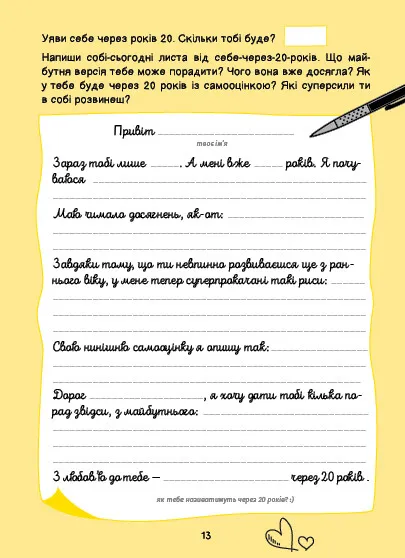 Уяви себе через років 20. Скільки тобі буде?
Напиши собі-сьогодні листа від себе-через-20-років. Що май-
бутня версія тебе може порадити? Чого вона вже досягла? Як
у тебе буде через 20 років із самооцінкою? Які суперсили ти
в собі розвинеш?
Привіт
твоє ім'я
Зараз тобі лише . А мені вже років. Я почу-
ваюся
Маю чимало досягнень, як-от:
Завдяки тому, що ти невпинно розвиваєшся ще з ран-
нього віку, у мене тепер суперпрокачані такі риси:
Свою нинішню самооцінку я опишу так:
Дорог , я хочу дати тобі кілька по-
рад звідси, з майбутнього:
З любов'ю до тебе – через 20 років .
як тебе називатимуть через 20 років? :)
13